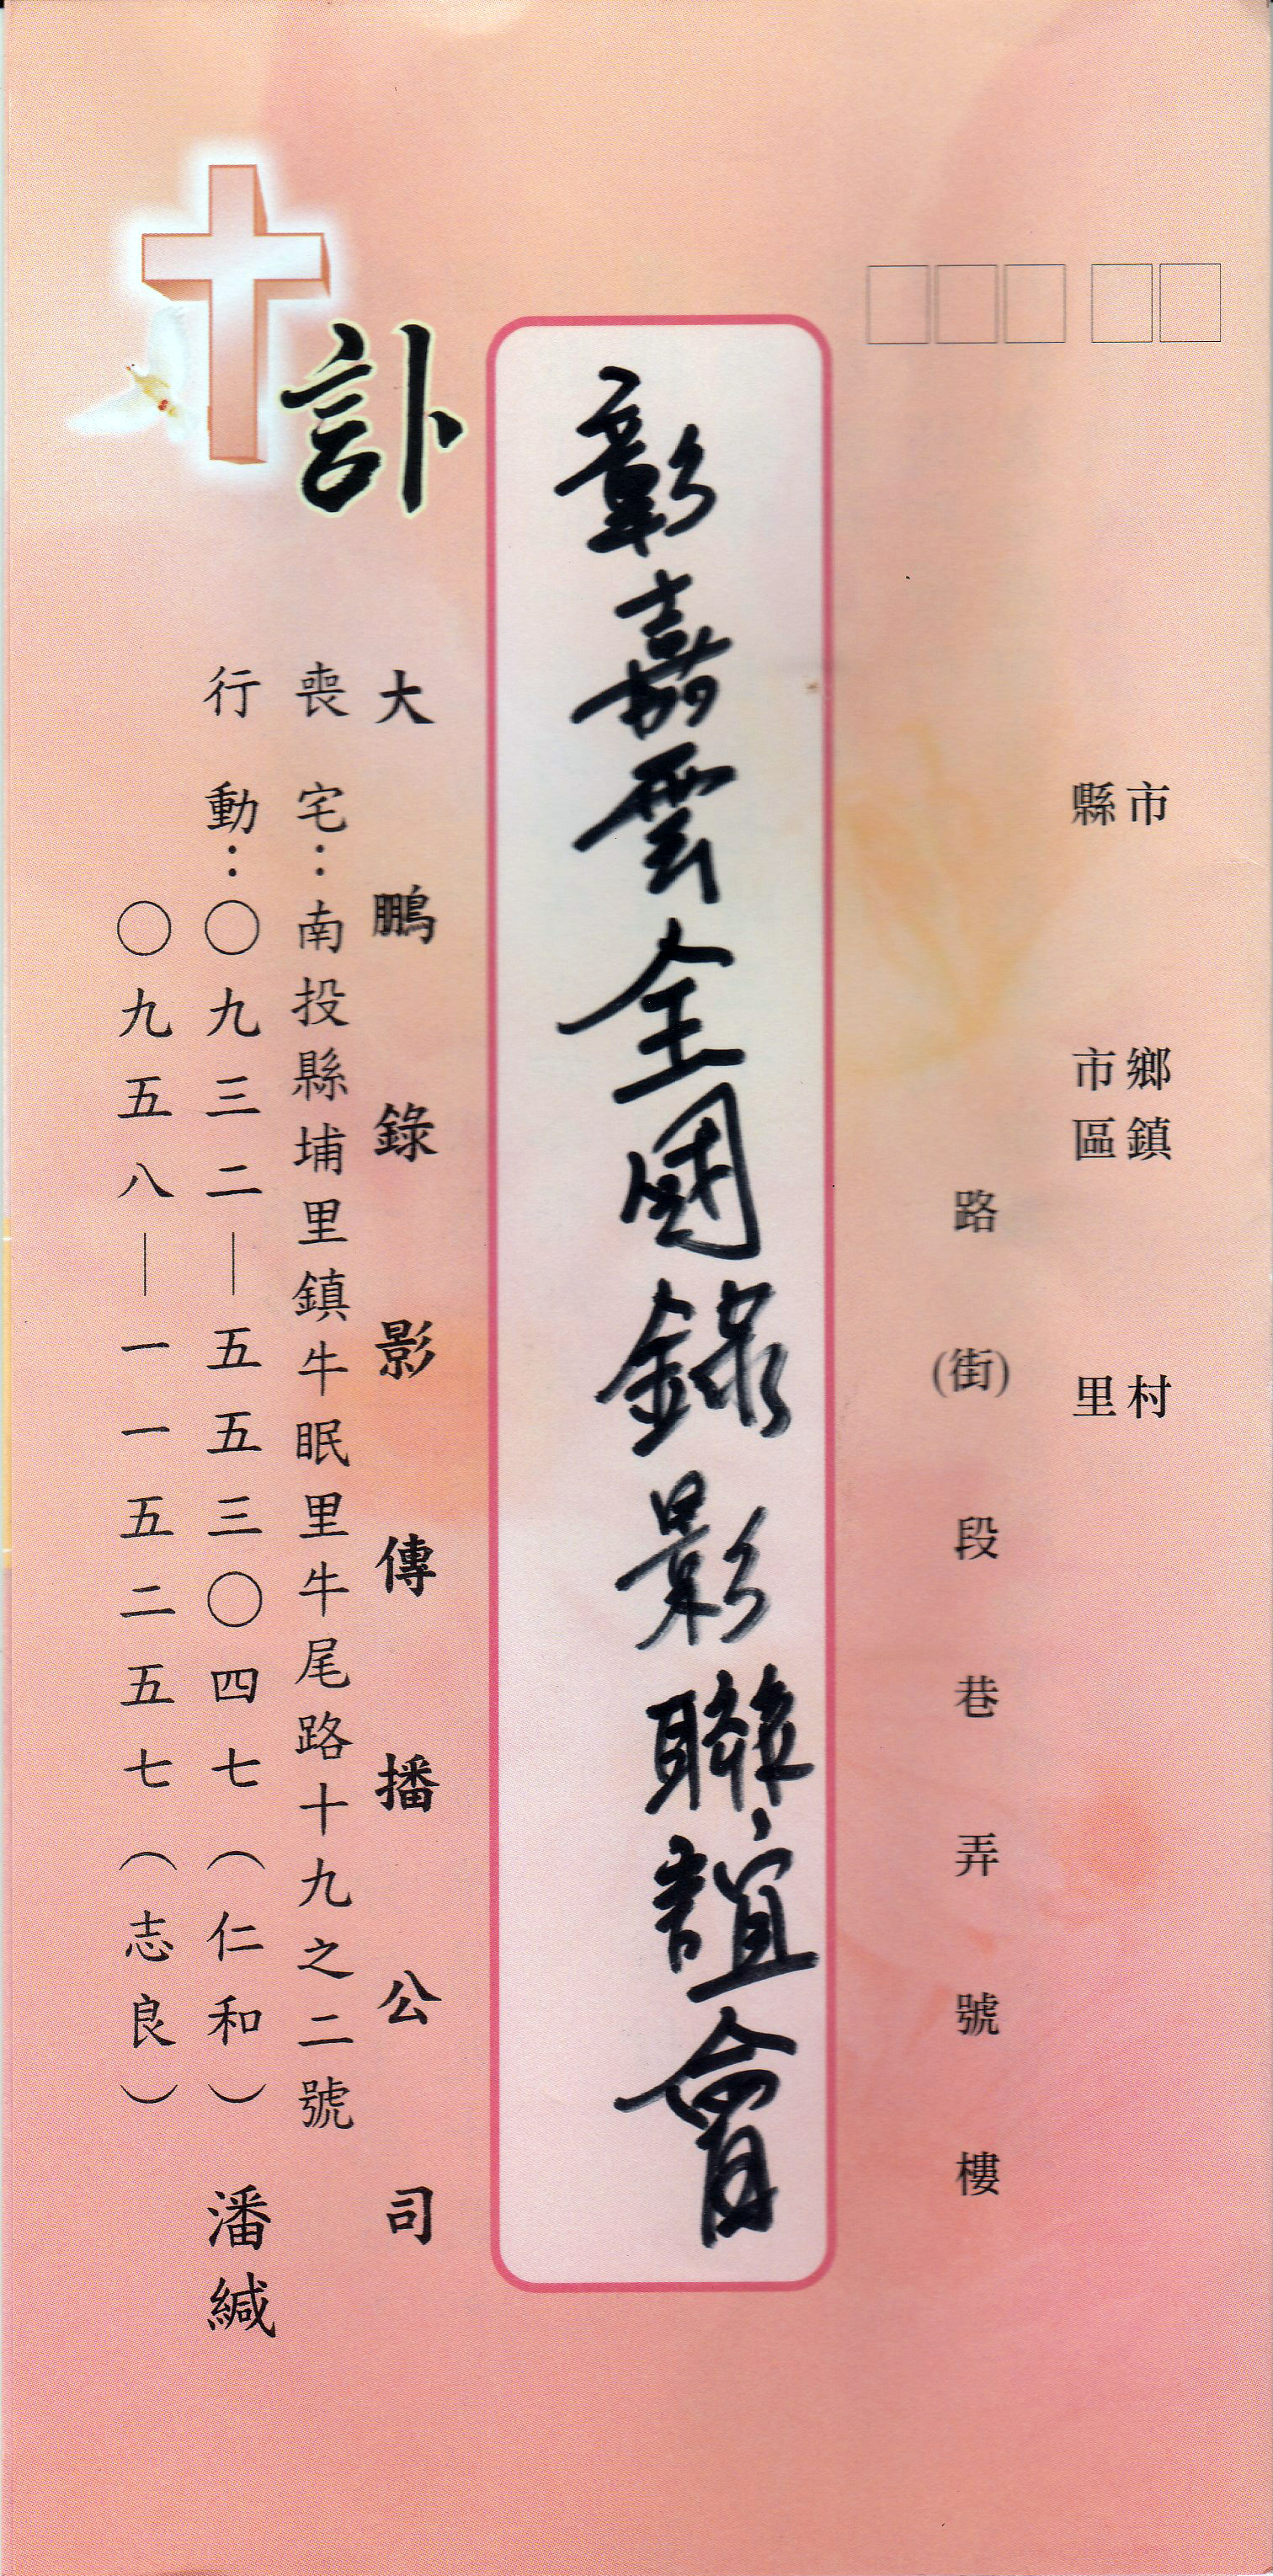 縣市
市鄉
區鎮
里村
路(街)段巷弄號樓
彰嘉雲全國錄影聯誼會
訃
大鵬錄影傳播公司
喪宅：南投縣埔里鎮牛眠里牛尾路十九之二號
行動：〇九三二－五五三〇四七（仁和）
〇九五八－一一五二五七（志良）
潘緘